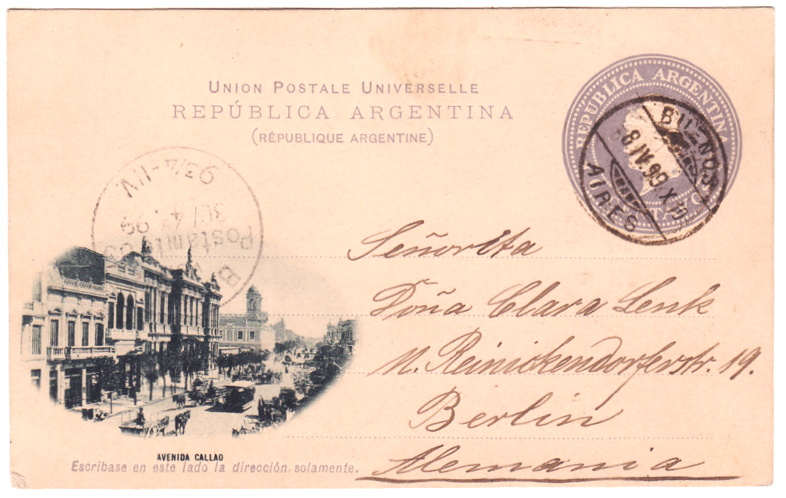 UNION POSTALE UNIVERSELLE
REPÚBLICA ARGENTINA
(RÉPUBLIQUE ARGENTINE)
REPUBLICA ARGENTIN
BUENOS
8 IV. 99
AIRES
9 3/4-11V.
30/4.99
Postamt
Señorita
Doña Clara Lenk
N. Reinickendorferstr. 19.
Berlin
Alemania
AVENIDA CALLAO
Escribase en este lado la dirección solamente.